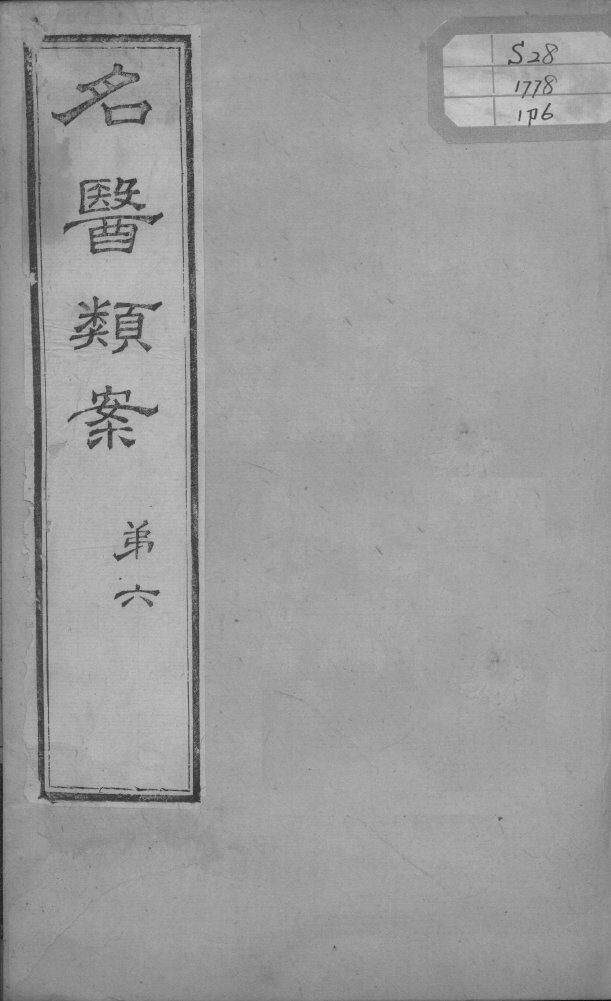 名醫類案
弟六
S28
1778
1:P6